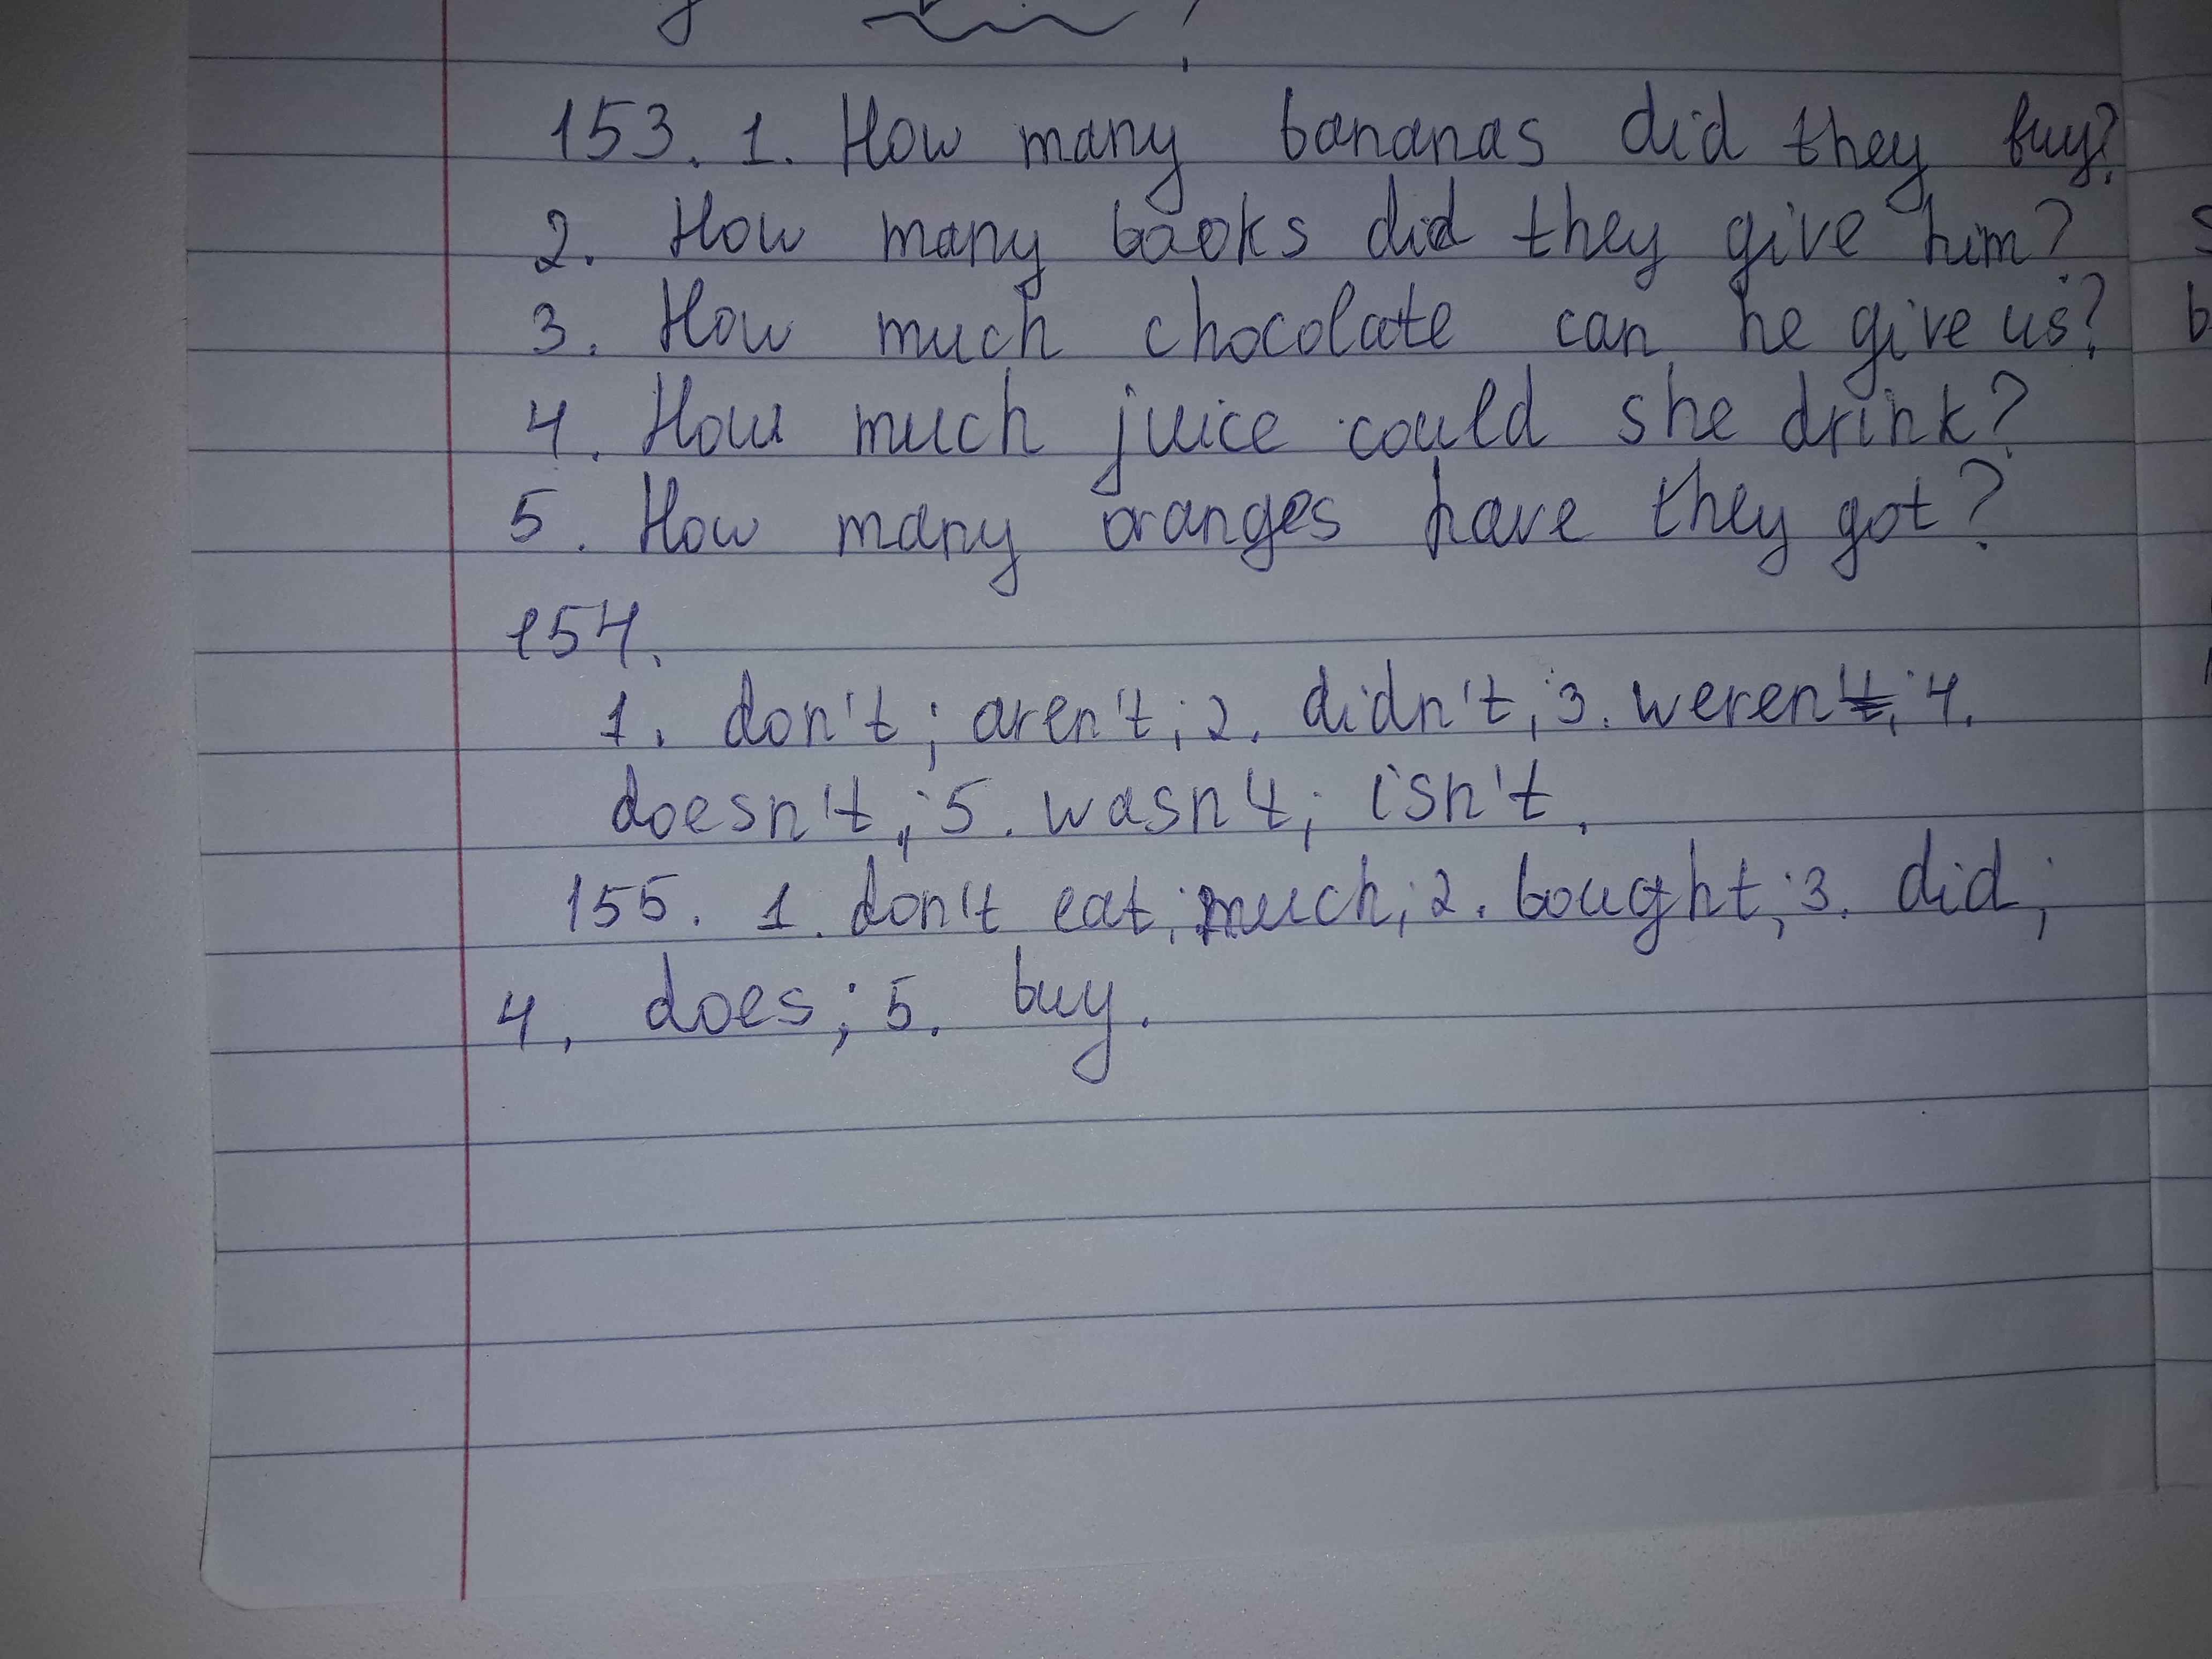 153. 1. How many bananas did they buy?
2. How many books did they give him?
3. How much chocolate can he give us?
4. How much juice could she drink?
5. How many oranges have they got?
154.
1. don't; aren't; 2. didn't; 3. weren't; 4.
doesn't; 5. wasn't; isn't.
155. 1. don't eat; much; 2. bought; 3. did;
4. does; 5. buy.